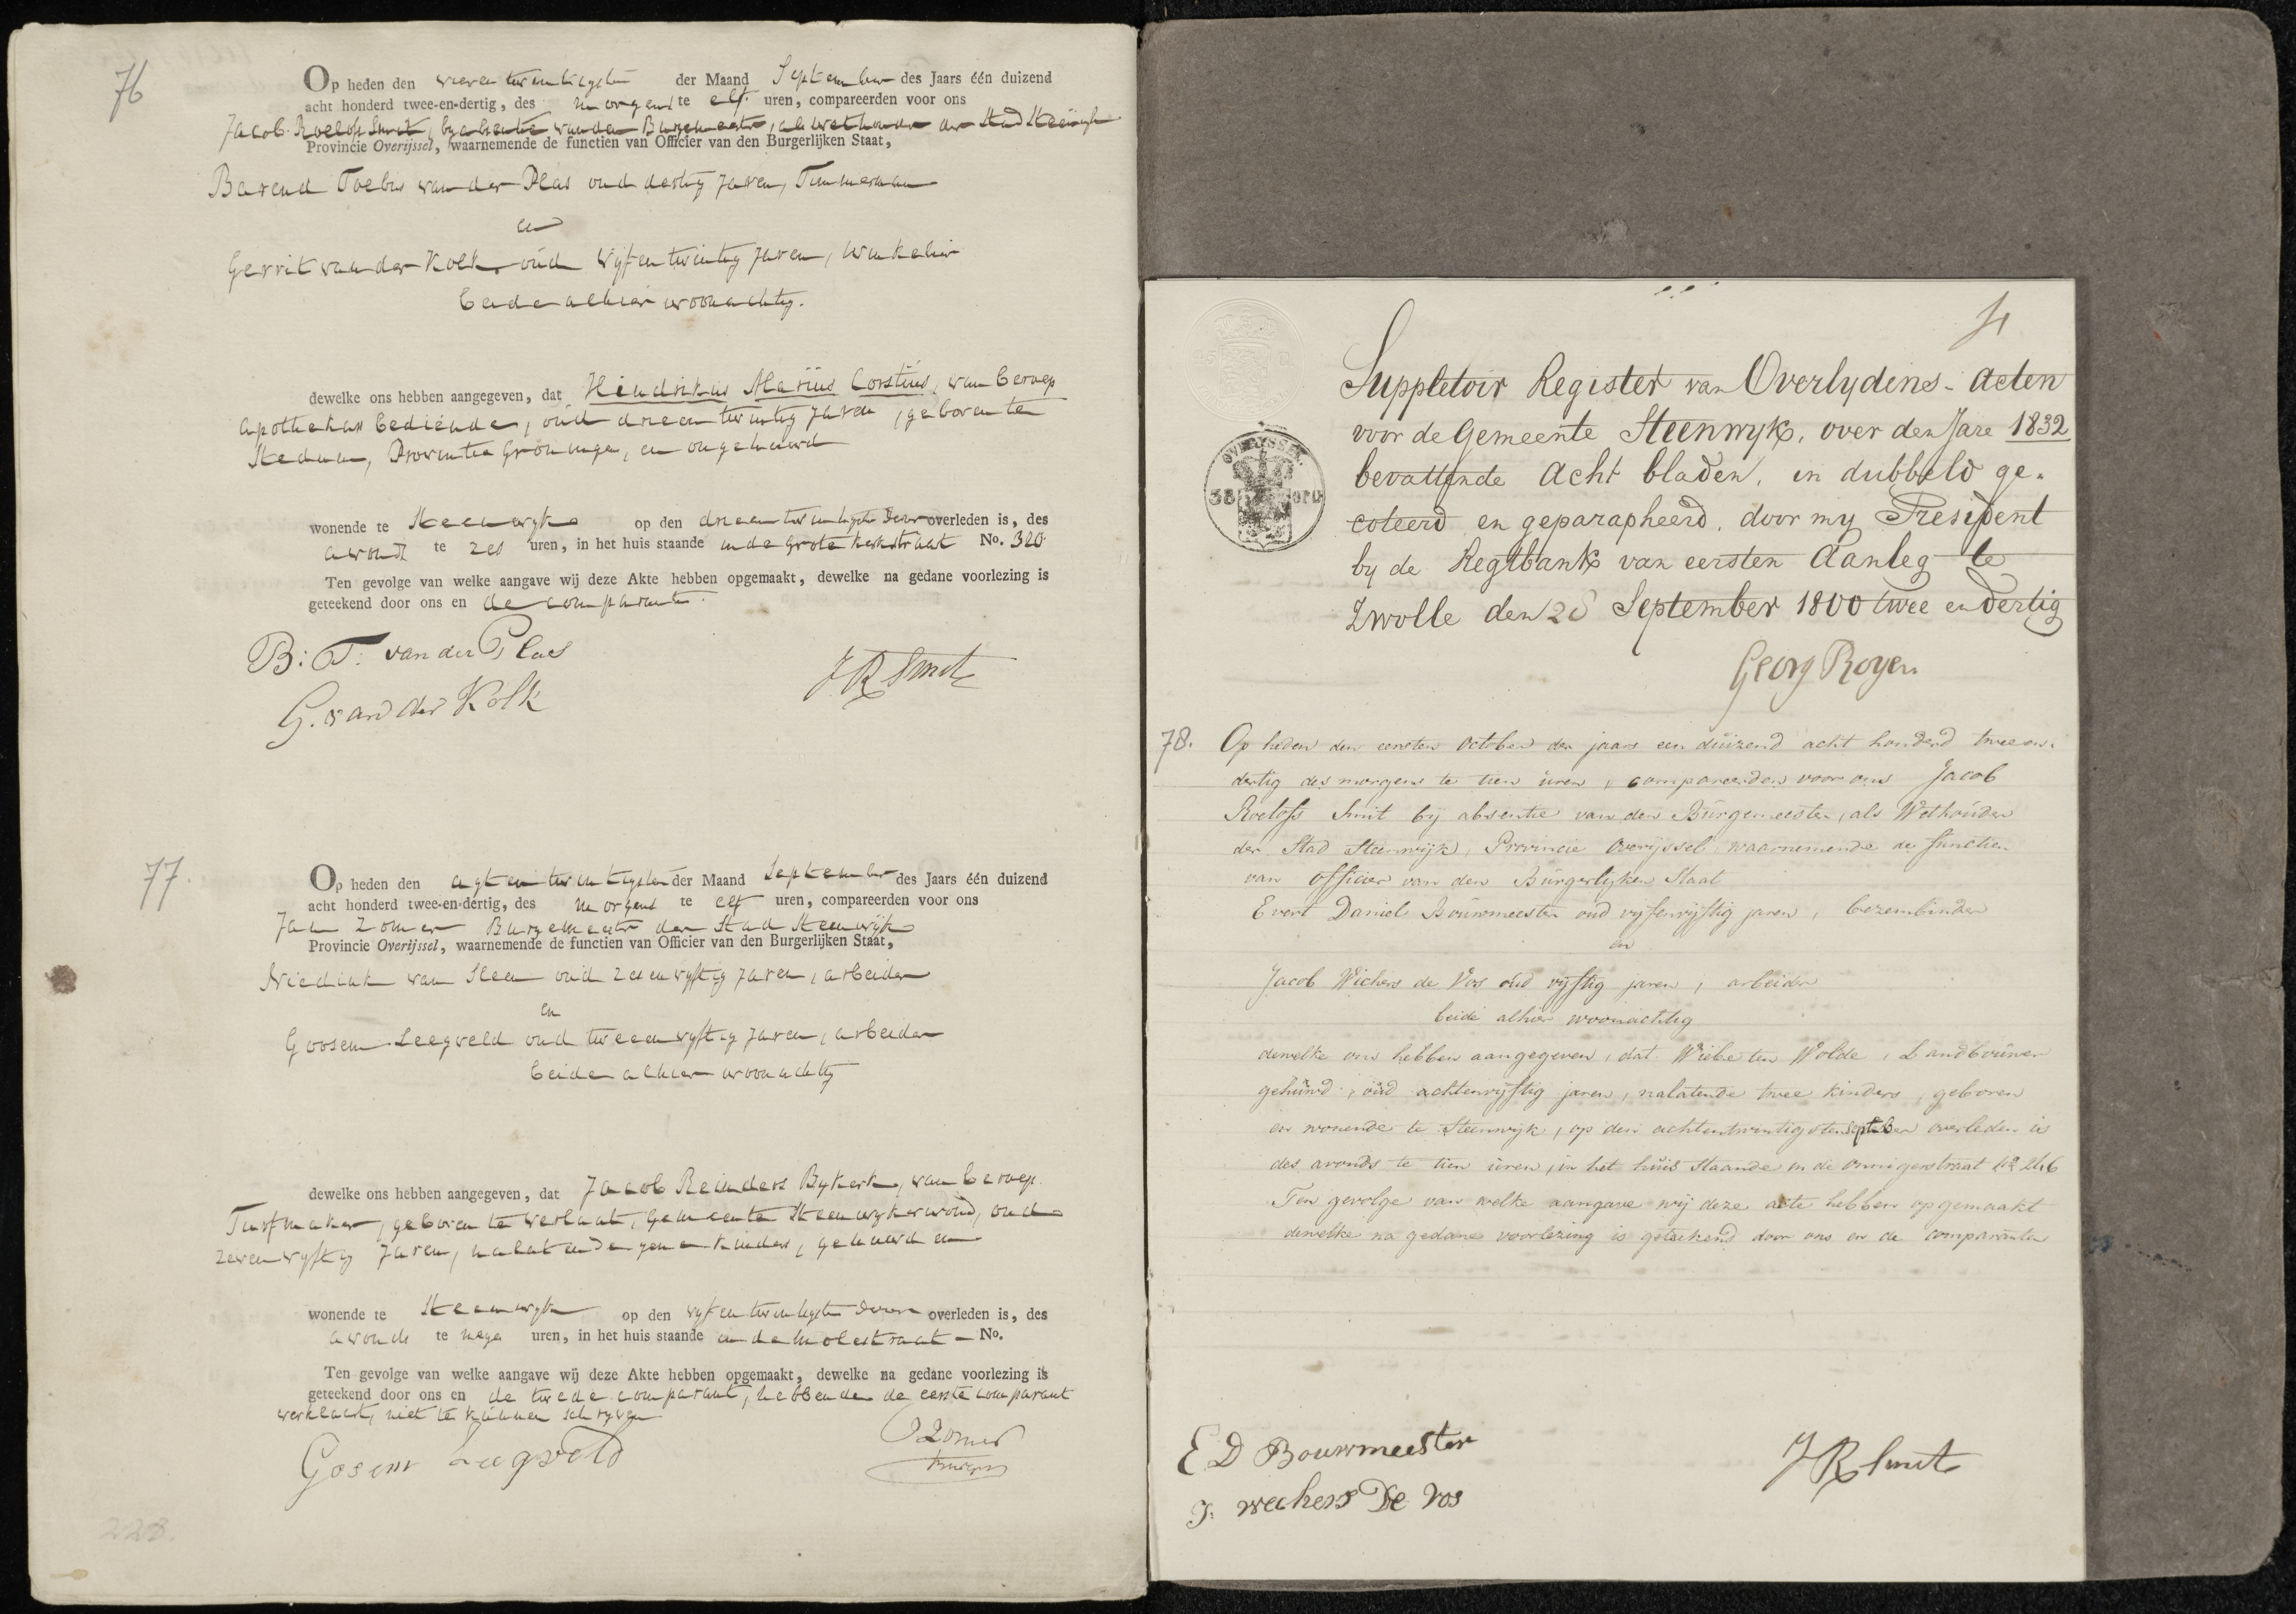 76
Op heden den vierentwintigsten der Maand September des Jaars één duizend
acht honderd twee-en-dertig, des morgens te elf uren, compareerden voor ons
Jacob Roelofs Smit, by absentie van den Burgemeester, als Wethouder der Stad Steenwijk
Provincie Overijssel, waarnemende de functien van Officier van den Burgerlijken Staat,
Barend Toebes van der Plas oud dertig Jaren, Timmerman
en
Gerrit van der Kolk oud vyfentwintig Jaren, winkelier
beide alhier woonachtig.
dewelke ons hebben aangegeven, dat Hindrikus Marius Corstius, van beroep
apothekars bediende, oud drieentwintig Jaren, geboren te
Stedum, Provintie Groningen, en ongehuwd
wonende te Steenwyk op den drieentwintigsten dezer overleden is, des
avonds te zes uren, in het huis staande in de Grote Kerkstraat No. 320
Ten gevolge van welke aangave wij deze Akte hebben opgemaakt, dewelke na gedane voorlezing is
geteekend door ons en de comparanten.
B: T: van der Plas
G. van der Kolk
J R Smit
77.
Op heden den agtentwintigsten der Maand September des Jaars één duizend
acht honderd twee-en-dertig, des morgens te elf uren, compareerden voor ons
Jan Zomer Burgemeester der Stad Steenwijk
Provincie Overijssel, waarnemende de functien van Officier van den Burgerlijken Staat,
van Steen oud zesenvyftig Jaren, arbeider
en
Goosen Leegveld oud tweeenvyftig Jaren, arbeider
beide alhier woonachtig
dewelke ons hebben aangegeven, dat Jacob Reinders Bykerk, van beroep
Turfmaker, geboren te Verlaat, Gemeente Steenwykerwold, oud
zevenvyftig Jaren, nalatende gene kinders, gehuwd en
wonende te Steenwyk op den vyfentwintigsten dezer overleden is, des
avonds te nege uren, in het huis staande in de Molestraat – No.
Ten gevolge van welke aangave wij deze Akte hebben opgemaakt, dewelke na gedane voorlezing is
geteekend door ons en de twede comparant, hebbende de eerste comparant
verklaart, niet te kunnen schryven
Gosem Leegveld
J Zomer
Burgem
228.
Suppletoir Register van Overlydens-Acten
voor de Gemeente Steenwyk, over den Jare 1832
bevattende Acht bladen, in dubbeld ge-
coteerd en geparapheerd, door my President
by de Regtbank van eersten Aanleg te
Zwolle den 28 September 1800 twee en dertig
Georg Royer
OVERYSSEL.
38
78. Op heden den eersten October der jaars een duizend acht honderd twee en
dertig des morgens te tien uren, compareerden voor ons Jacob
Roelofs Smit bij absentie van den Burgemeester, als Wethouder
der Stad Steenwijk, Provincie Overijssel waarnemende de functien
van Officier van den Burgerlijken Staat
Evert Daniel Bouwmeester oud vijfenvijftig jaren, bezembinder
en
Jacob Wichers de Vos oud vijftig jaren, arbeider
beide alhier woonachtig
dewelke ons hebben aangegeven, dat Wiebe ten Wolde, Landbouwer
gehuwd, oud achtenvijftig jaren, nalatende twee kinders, geboren
en wonende te Steenwijk, op den achtentwintigsten September overleden is
des avonds te tien uren, in het huis staande in de Onnigerstraat No 246
Ten gevolge van welke aangave wij deze acte hebben opgemaakt
dewelke na gedane voorlezing is geteekend door ons en de comparanten
E D Bouwmeester
J: weehers De Vos
J R Smit